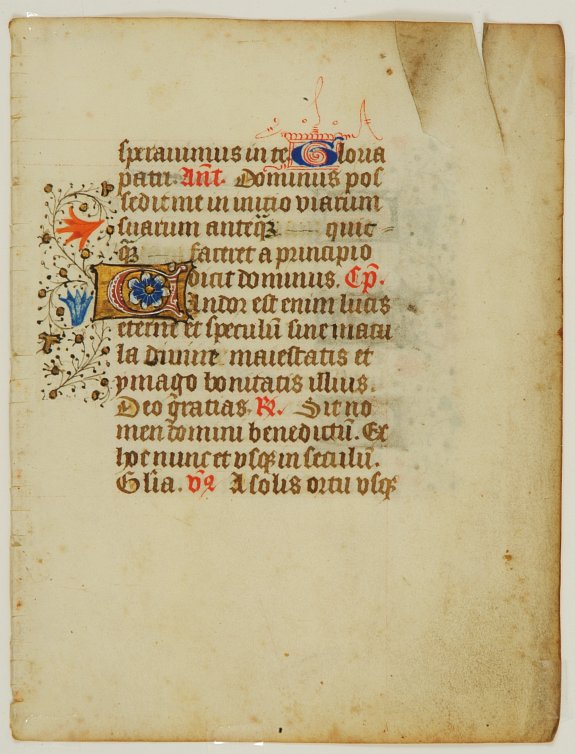 sperauimus in te Gloria
patri. Ant̄. Dominus pos
sedit me in initio viarum
suarum anteq̄ quic-
q̄ faceret a principio
dicit dominus. Cp̄.
Candor est enim lucis
eterne et speculū sine macu
la diuine maiestatis et
ymago bonitatis illius.
Deo gr̄atias. R̄. Sit no
men domini benedictū. Ex
hoc nunc et vsqꝫ in seculū.
Glīa. v̄ A solis ortu vsqꝫ